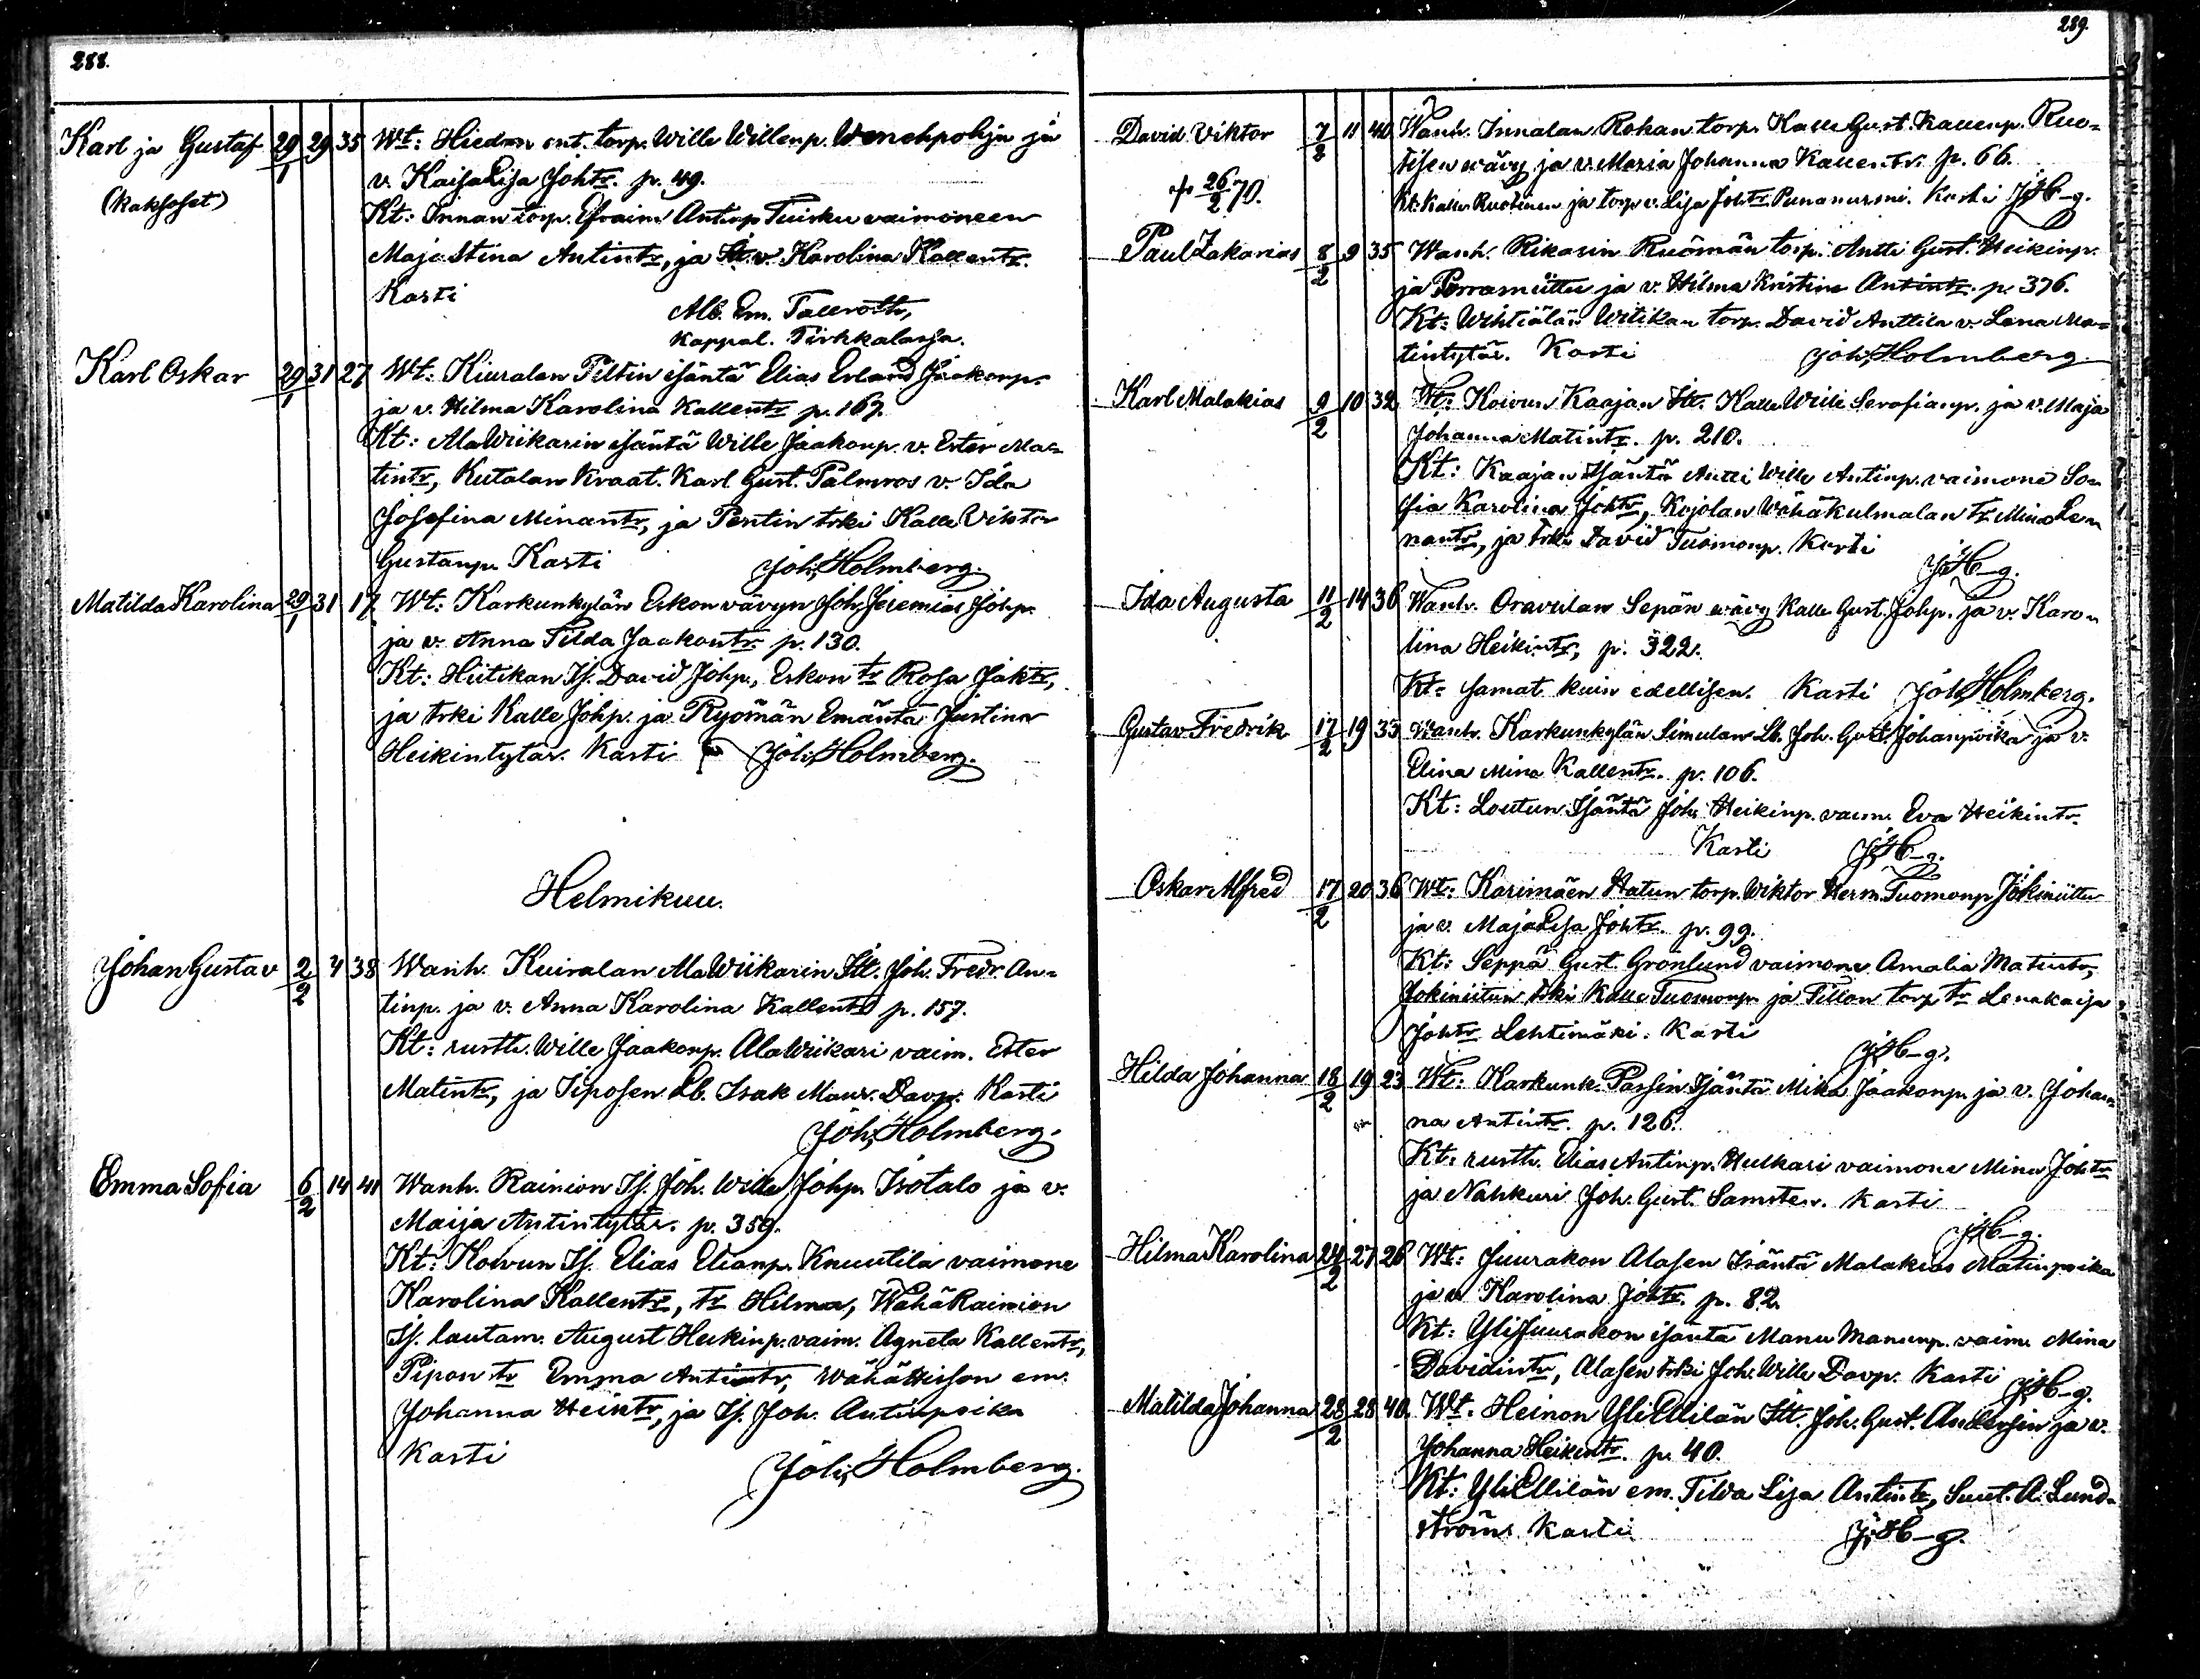 288.
Karl ja Gustaf 29/1 29 35 Wt: Hiedan ent. torp. Wille Willenp. Wenehpohja ja
(kaksoset) v. Kaisa Lisa Johtr. p. 49.
Kt: Innan torp. Efraim Antinp. Tuisku vaimoneen
Maja Stina Antintr, ja Itt. v. Karolina Kallentr.
Kasti
Alb. Em. Tallroth,
Kappal. Tirkkalasja.
Karl Oskar 29/1 31 27 Wt: Kiuralan Piltin isäntä Elias Erland Jaakonp.
ja v. Hilma Karolina Kallentr p. 167.
Kt: AlaWiikarin isäntä Wille Jaakonp. v. Ester Ma-
tintr, Kutalan Kraat. Karl Gust. Palmros v. Ida
Josefina Minantr, ja Pentin trki Kalle Viktor
Gustanp. Kasti Joh. Holmberg.
Matilda Karolina 29/1 31 17 Wt: Karkunkylän Eskon vävyn Joh. Jeremias Johp.
ja v. Anna Tilda Jaakontr. p. 130.
Kt: Hiitikan Is. David Johp., Eskon tr Rosa Jaktr,
ja trki Kalle Johp. ja Ryömän Emäntä Justina
Heikintytär. Kasti Joh. Holmberg.
Helmikuu.
Johan Gustav 2/2 4 38 Wanh. Kuiralan AlaWiikarin Itt. Joh. Fredr. An-
tinp. ja v. Anna Karolina Kallentr p. 157.
Kt: rusth. Wille Jaakonp. AlaWiikari vaim. Ester
Matintr, ja Siposen Lb. Isak Maur. Davp. Kasti
Joh. Holmberg.
Emma Sofia 6/2 14 41 Wanh. Rainion Is. Joh. Wille Johp. Isotalo ja v.
Maija Antintytär. p. 359.
Kt: Kowun Is. Elias Elianp. Knuutila vaimone
Karolina Kallentr, tr Hilma, WähäRainion
Is. lautam. August Heikinp. vaim. Agneta Kallentr,
Pipon tr Emma Antintr, WähäHeison em.
Johanna Heintr, ja Is. Joh. Antinpoika
Kasti Joh. Holmberg.
289.
David Viktor 7/2 11 40 Wanh. Innalan Rokan torp. Kalle Gust. Kallenp. Ruo-
tisen wävy ja v. Maria Johanna Kallentr. p. 66.
† 26/2 70. Kt: Kalle Ruotinen ja torp. v. Lisa Johtr Punanurmi. Kasti JHb-g.
Paul Zakarias 8/2 9 35 Wanh. Rikarin Ruömän torp. Antti Gust. Heikinp.
ja Porraniittu ja v. Hilma Kristina Antintr. p. 376.
Kt: Wihtiälän Witikan torp. David Anttila v. Lena Ma-
tintytär. Kasti Joh. Holmberg.
Karl Malakias 9/2 10 32 Wt: Kowun Kaajan Itt. Kalle Wille Serafianp. ja v. Maja
Johanna Matintr. p. 210.
Kt: Kaajan Isäntä Antti Wille Antinp. vaimone So-
fia Karolina Johtr, Kojolan Wähäkulmalan tr Mina Le-
nantr, ja trki David Tuomonp. Kasti
JHb-g.
Ida Augusta 11/2 14 36 Wanh. Oravulan Sepän wävy Kalle Gust. Johp. ja v. Karo-
lina Heikintr, p. 322.
Kt: samat kuin edellisen. Kasti Joh. Holmberg.
Gustav Fredrik 17/2 19 33 Wanh. Karkunkylän Simulan Lb. Joh. Gust. Johanpoika ja v.
Elina Mina Kallentr. p. 106.
Kt: Loutun Isäntä Joh. Heikinp. vaim. Eva Heikintr.
Kasti JHb-g.
Oskar Alfred 17/2 20 36 Wt: Karimäen Hatun torp. Wiktor Herm. Tuomonp. Jokiniittu
ja v. Maja Lisa Johtr. p. 99.
Kt: Seppä Gust. Grönlund vaimone Amalia Matintr,
Jokiniitun trki Kalle Tuomonp. ja Pillon torp. tr Lenakaisa
Johtr Lehtimäki. Kasti
JHb-g.
Hilda Johanna 18/2 19 23 Wt: Karkunk. Passin Isäntä Mika Jaakonp. ja v. Johan-
na Antintr. p. 126.
Kt: rusth. Elias Antinp. Hulkari vaimone Mina Johtr
ja Nahkuri Joh. Gust. Samsten. Kasti
JHb-g.
Hilma Karolina 24/2 27 26 Wt: Juurakon Alasen Isäntä Malakias Matinpoika
ja v. Karolina Johtr. p. 82.
Kt: YliJuurakon isäntä Manu Manunp. vaim. Mina
Davidintr, Alasen trki Joh. Wille Davp. Kasti JHb-g.
Matilda Johanna 28/2 28 40. Wt. Heinon YliEllilän Itt. Joh. Gust. Andersin ja v.
Johanna Heikintr. p. 40.
Kt: YliEllilän em. Tilda Lisa Antintr, Suut. A. Lund-
ströms Kasti JHb-g.